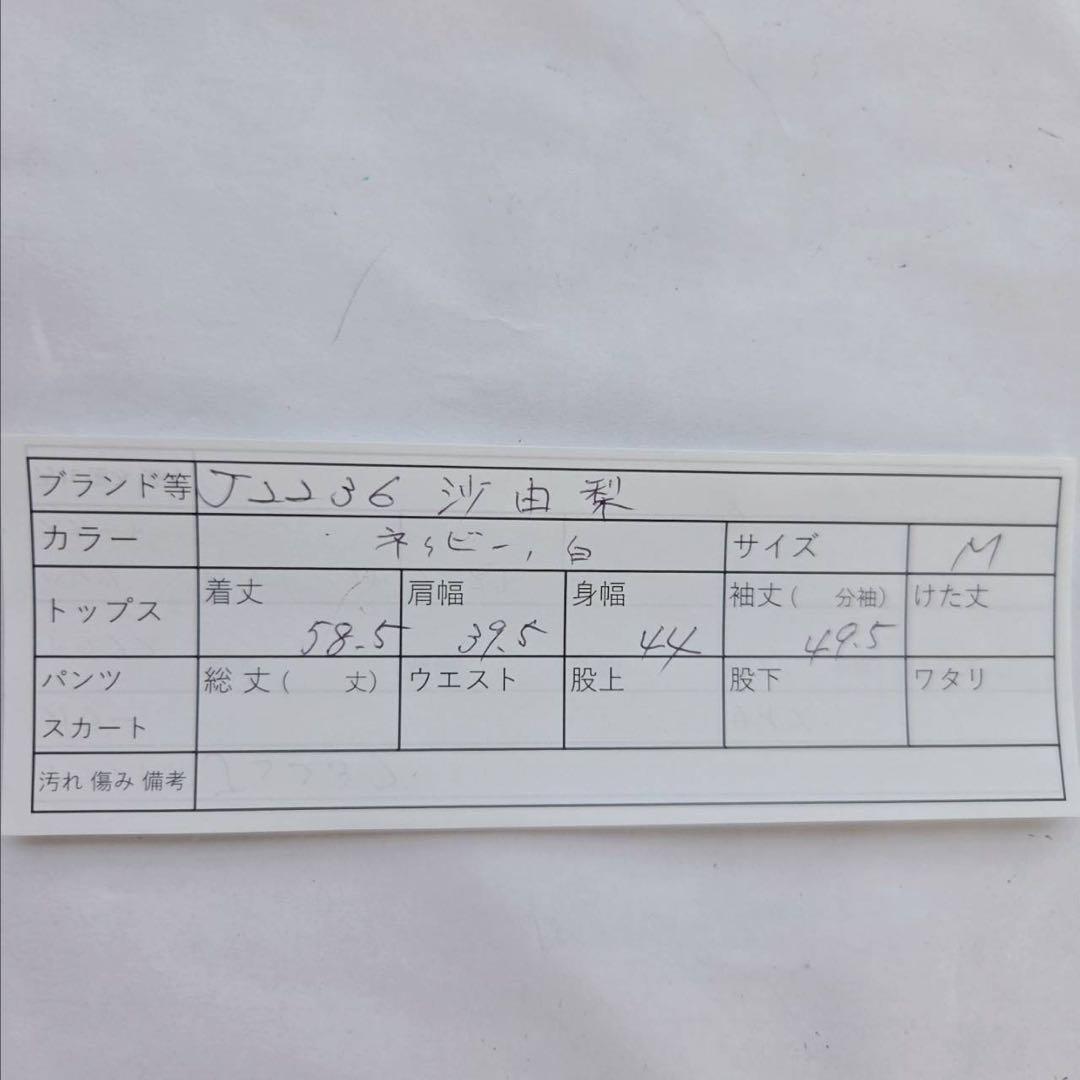 ブランド等 J2236 沙由梨
カラー ネイビー,白 サイズ M
トップス 着丈 58.5 肩幅 39.5 身幅 44 袖丈( 分袖) 49.5 けた丈
パンツ スカート 総丈( 丈) ウエスト 股上 股下 ワタリ
汚れ 傷み 備考